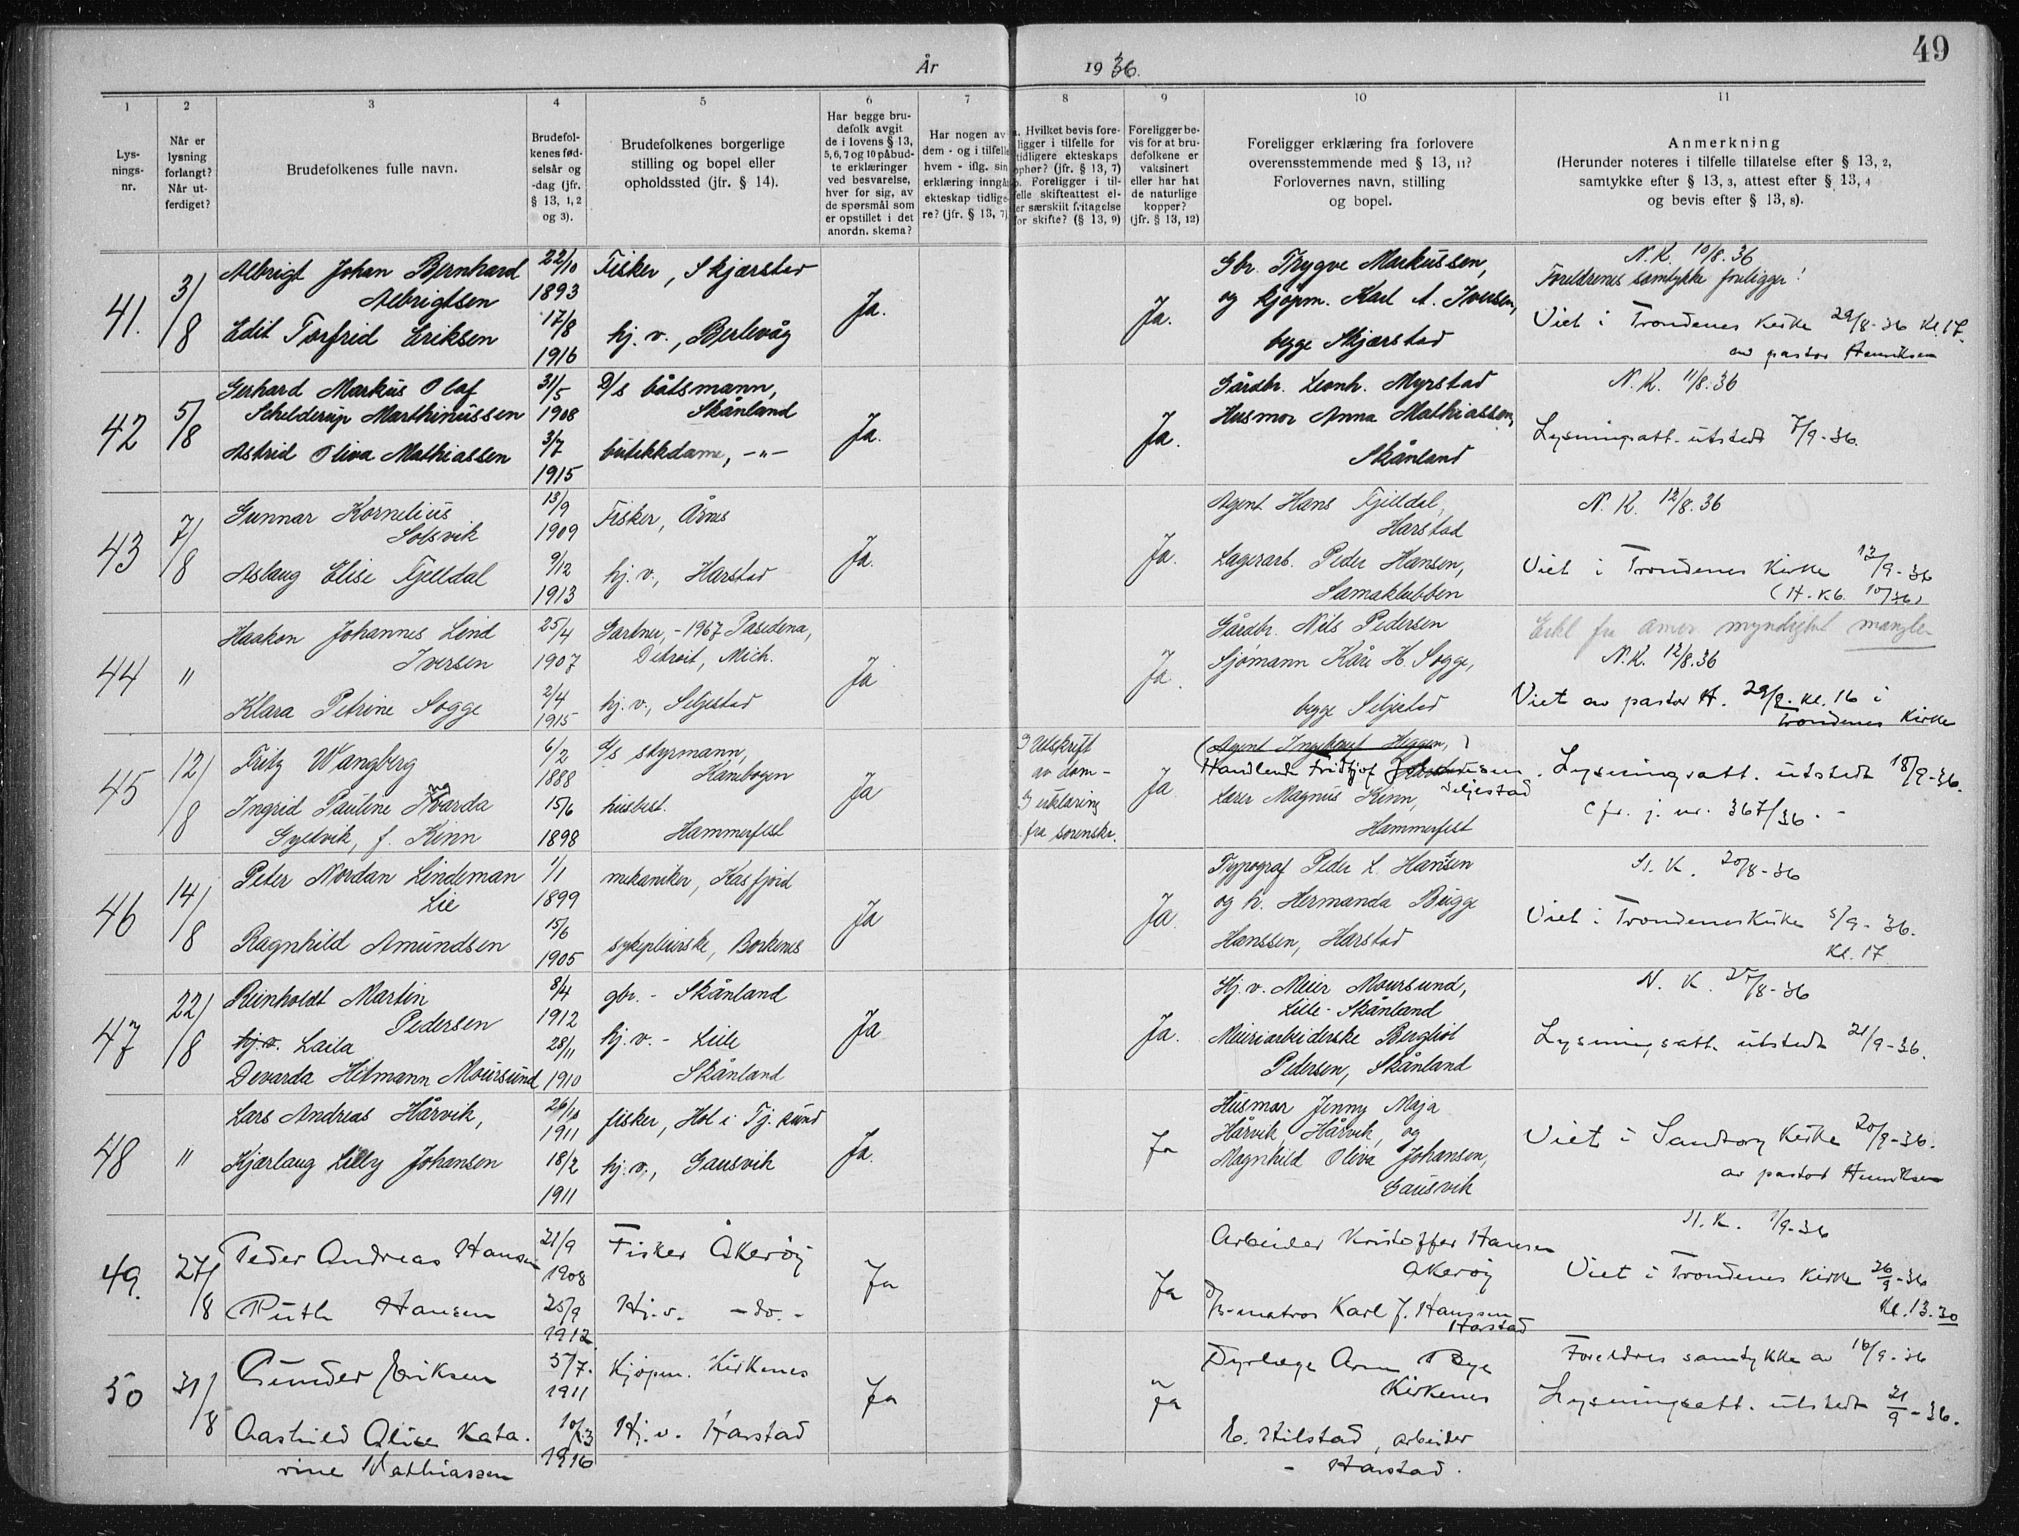 49
År 1936.
1 2 3 4 5 6 7 8 9 10 11
Lysnings-nr.
Når er lysning forlangt? Når utferdiget?
Brudefolkenes fulle navn.
Brudefolkenes fødselsår og -dag (jfr. § 13, 1, 2 og 3).
Brudefolkenes borgerlige stilling og bopel eller opholdssted (jfr. § 14).
Har begge brudefolk avgit de i lovens § 13, 5, 6, 7 og 10 påbudte erklæringer ved besvarelse, hver for sig, av de spørsmål som er opstillet i det anordn. skema?
Har nogen av dem - og i tilfelle hvem - iflg. sin erklæring inngått ekteskap tidligere? (jfr. § 13, 7)
a. Hvilket bevis foreligger i tilfelle for tidligere ekteskaps ophør? (jfr. § 13, 7) b. Foreligger i tilfelle skifteattest eller særskilt fritagelse for skifte? (§ 13, 9)
Foreligger bevis for at brudefolkene er vaksinert eller har hat de naturlige kopper? (jfr. § 13, 12)
Foreligger erklæring fra forlovere overensstemmende med § 13, 11? Forlovernes navn, stilling og bopel.
Anmerkning (Herunder noteres i tilfelle tillatelse efter § 13, 2, samtykke efter § 13, 3, attest efter § 13, 4 og bevis efter § 13, 8).
41. 3/8
Albrigt Johan Bernhard Albrigtsen 22/10 1893 Fisker, Skjærstad
Edit Torfrid Eriksen 17/8 1916 hj. v., Berlevåg
Ja. Ja.
Gbr. Trygve Markussen,
og kjøpm. Karl A. Iversen,
begge Skjærstad
N.K. 10/8.36
Foreldrenes samtykke foreligger!
Viet i Trondenes Kirke 29/8-36 Kl.17.
av pastor Henriksen
42 5/8
Gerhard Markus Olaf Schelderup Marthinussen 31/5 1908 D/s båtsmann, Skånland
Astrid Oliva Mathiassen 3/7 1915 butikkdame, -"-
Ja. Ja.
Gårdbr. Leonh. Myrstad
Husmor Anna Mathiassen,
Skånland
N.K. 11/8.36
Lysningsatt. utstedt 7/9-36.
43 7/8
Gunnar Kornelius Solsvik 13/9 1909 Fisker, Årnes
Aslaug Elise Fjelldal 9/12 1913 hj. v., Harstad
Ja. Ja.
Agent Hans Fjelldal,
Harstad
Lagerarb. Peder Hansen,
Samaklubben
N.K. 12/8.36
Viet i Trondenes Kirke 12/9-36
(H. Kb. 10/36)
44 "
Haakon Johannes Lind Iversen 25/4 1907 Gartner, -1967 Pasedena, Detroit, Mich.
Klara Petrine Sogge 2/4 1915 hj. v., Seljestad
Ja Ja.
Gårdbr. Nils Pedersen
Sjømann Kåre H. Sogge,
begge Seljestad
Erkl fra amer. myndighet mangler
N.K. 12/8.36
Viet av pastor H. 29/8. kl. 16 i
Trondenes Kirke
45 12/8
Fritz Wangberg 6/2 1888 D/s styrmann, Kanebogen
Ingrid Pauline Gyltvik, f. Kinn 15/6 1898 husbest. Hammerfest
Ja
Utskrift
av dom-
erklæring
fra sorenskr.
Ja
(Agent Heggen,)
Handlende Fridtjof Seljestad
Lærer Magnus Kinn,
Hammerfest
Lysningsatt. utstedt 18/9-36.
Cfr. j. nr. 367/36.-
46 14/8
Peter Nordan Lindeman Lie 1/1 1899 mekaniker, Kasfjord
Ragnhild Amundsen 15/6 1905 sykepleierske, Borkenes
Ja Ja.
Typograf Peder L. Hansen
og h. Hermanda Bugge
Hanssen, Harstad
N.K. 20/8-36
Viet i Trondenes Kirke 5/9-36.
Kl. 17.
47 22/8
Reinholdt Martin Pedersen 8/4 1912 gbr. - Skånland
hj.v. Laila Devarda Hitmann Moursund 28/11 1910 hj. v. - Lille Skånland
Ja Ja.
Hj. v. Meier Moursund,
Lille-Skånland
Meieriarbeiderske Bergliot
Pedersen, Skånland
N.K. 25/8-36
Lysningsatt. utstedt 21/9-36.
48 "
Lars Andreas Hårvik, 26/10 1911 fisker, Hol i Tj.sund
Kjærlaug Lilly Johansen 18/2 1911 hj. v., Gausvik
Ja. Ja
Husmor Jenny Maja
Hårvik, Hårvik, og
Magnhild Oliva Johansen,
Gausvik
Viet i Sandtorg Kirke 20/9-36.
av pastor Henriksen
49. 27/8
Peder Andreas Hansen 21/9 1908 Fisker Åkerøy
Ruth Hansen 25/9 1912 Hj. v. -do.-
Ja Ja
Arbeider Kristoffer Hansen
Åkerøy
matros Karl J. Hanssen
Harstad
N.K. 1/9-36
Viet i Trondenes kirke 26/9-36
Kl. 13.30
50 31/8
Gunder Eriksen 5/7. 1911 Kjøpm. Kirkenes
Aashild Alise Katarine Mathiassen 10/3 1916 Hj. v. Harstad
Ja Ja
Dyrlæge Arne Bye
Kirkenes
E. Hilstad, arbeider
- Harstad.
Foreldres samtykke av 16/9-36
Lysningsatt. utstedt 21/9-36.